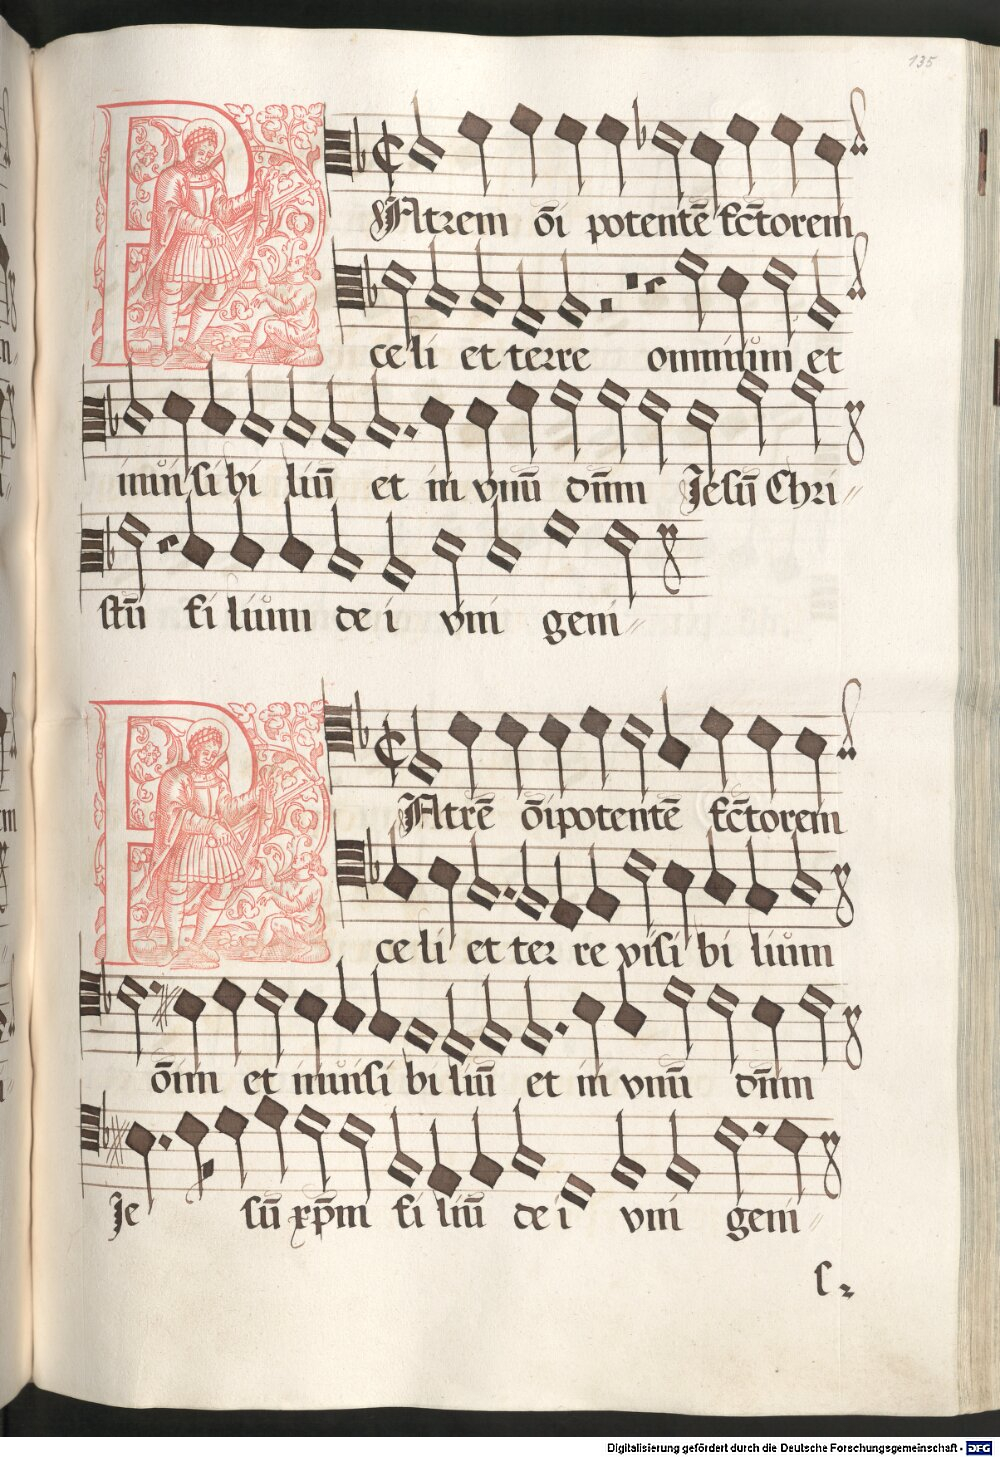 135
PAtrem õi potentē fc̄torem
celi et terre omnium et
inuisibi liū et in vnū dn̄m Jesū Chri
stū fi lium de i vni geni
PAtrē õipotentē fc̄torem
celi et ter re visi bi lium
õim et inuisi bi liū et in vnū dn̄m
Je sū xp̄m fi liū de i vni geni
Digitalisierung gefördert durch die Deutsche Forschungsgemeinschaft - DFG